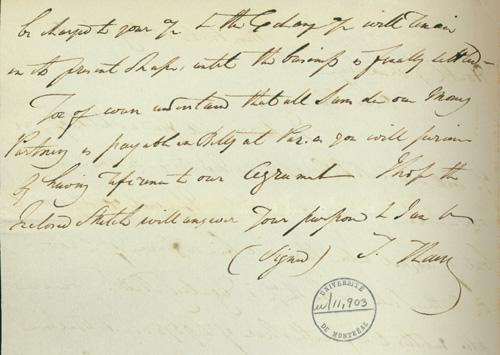 be charged to your a/c & the Exchange a/c will remain
in its present shape, until the business is finally settled —
You of course understand that all Sums due our Money
Partners is payable in Bills at Par. as you will perceive
by having reference to our Agreement I hope the
Inclosed Sketch will answer Your purpose & I am &c
(Signed) T. Thain
UNIVERSITÉ
u/11,903
DE MONTRÉAL